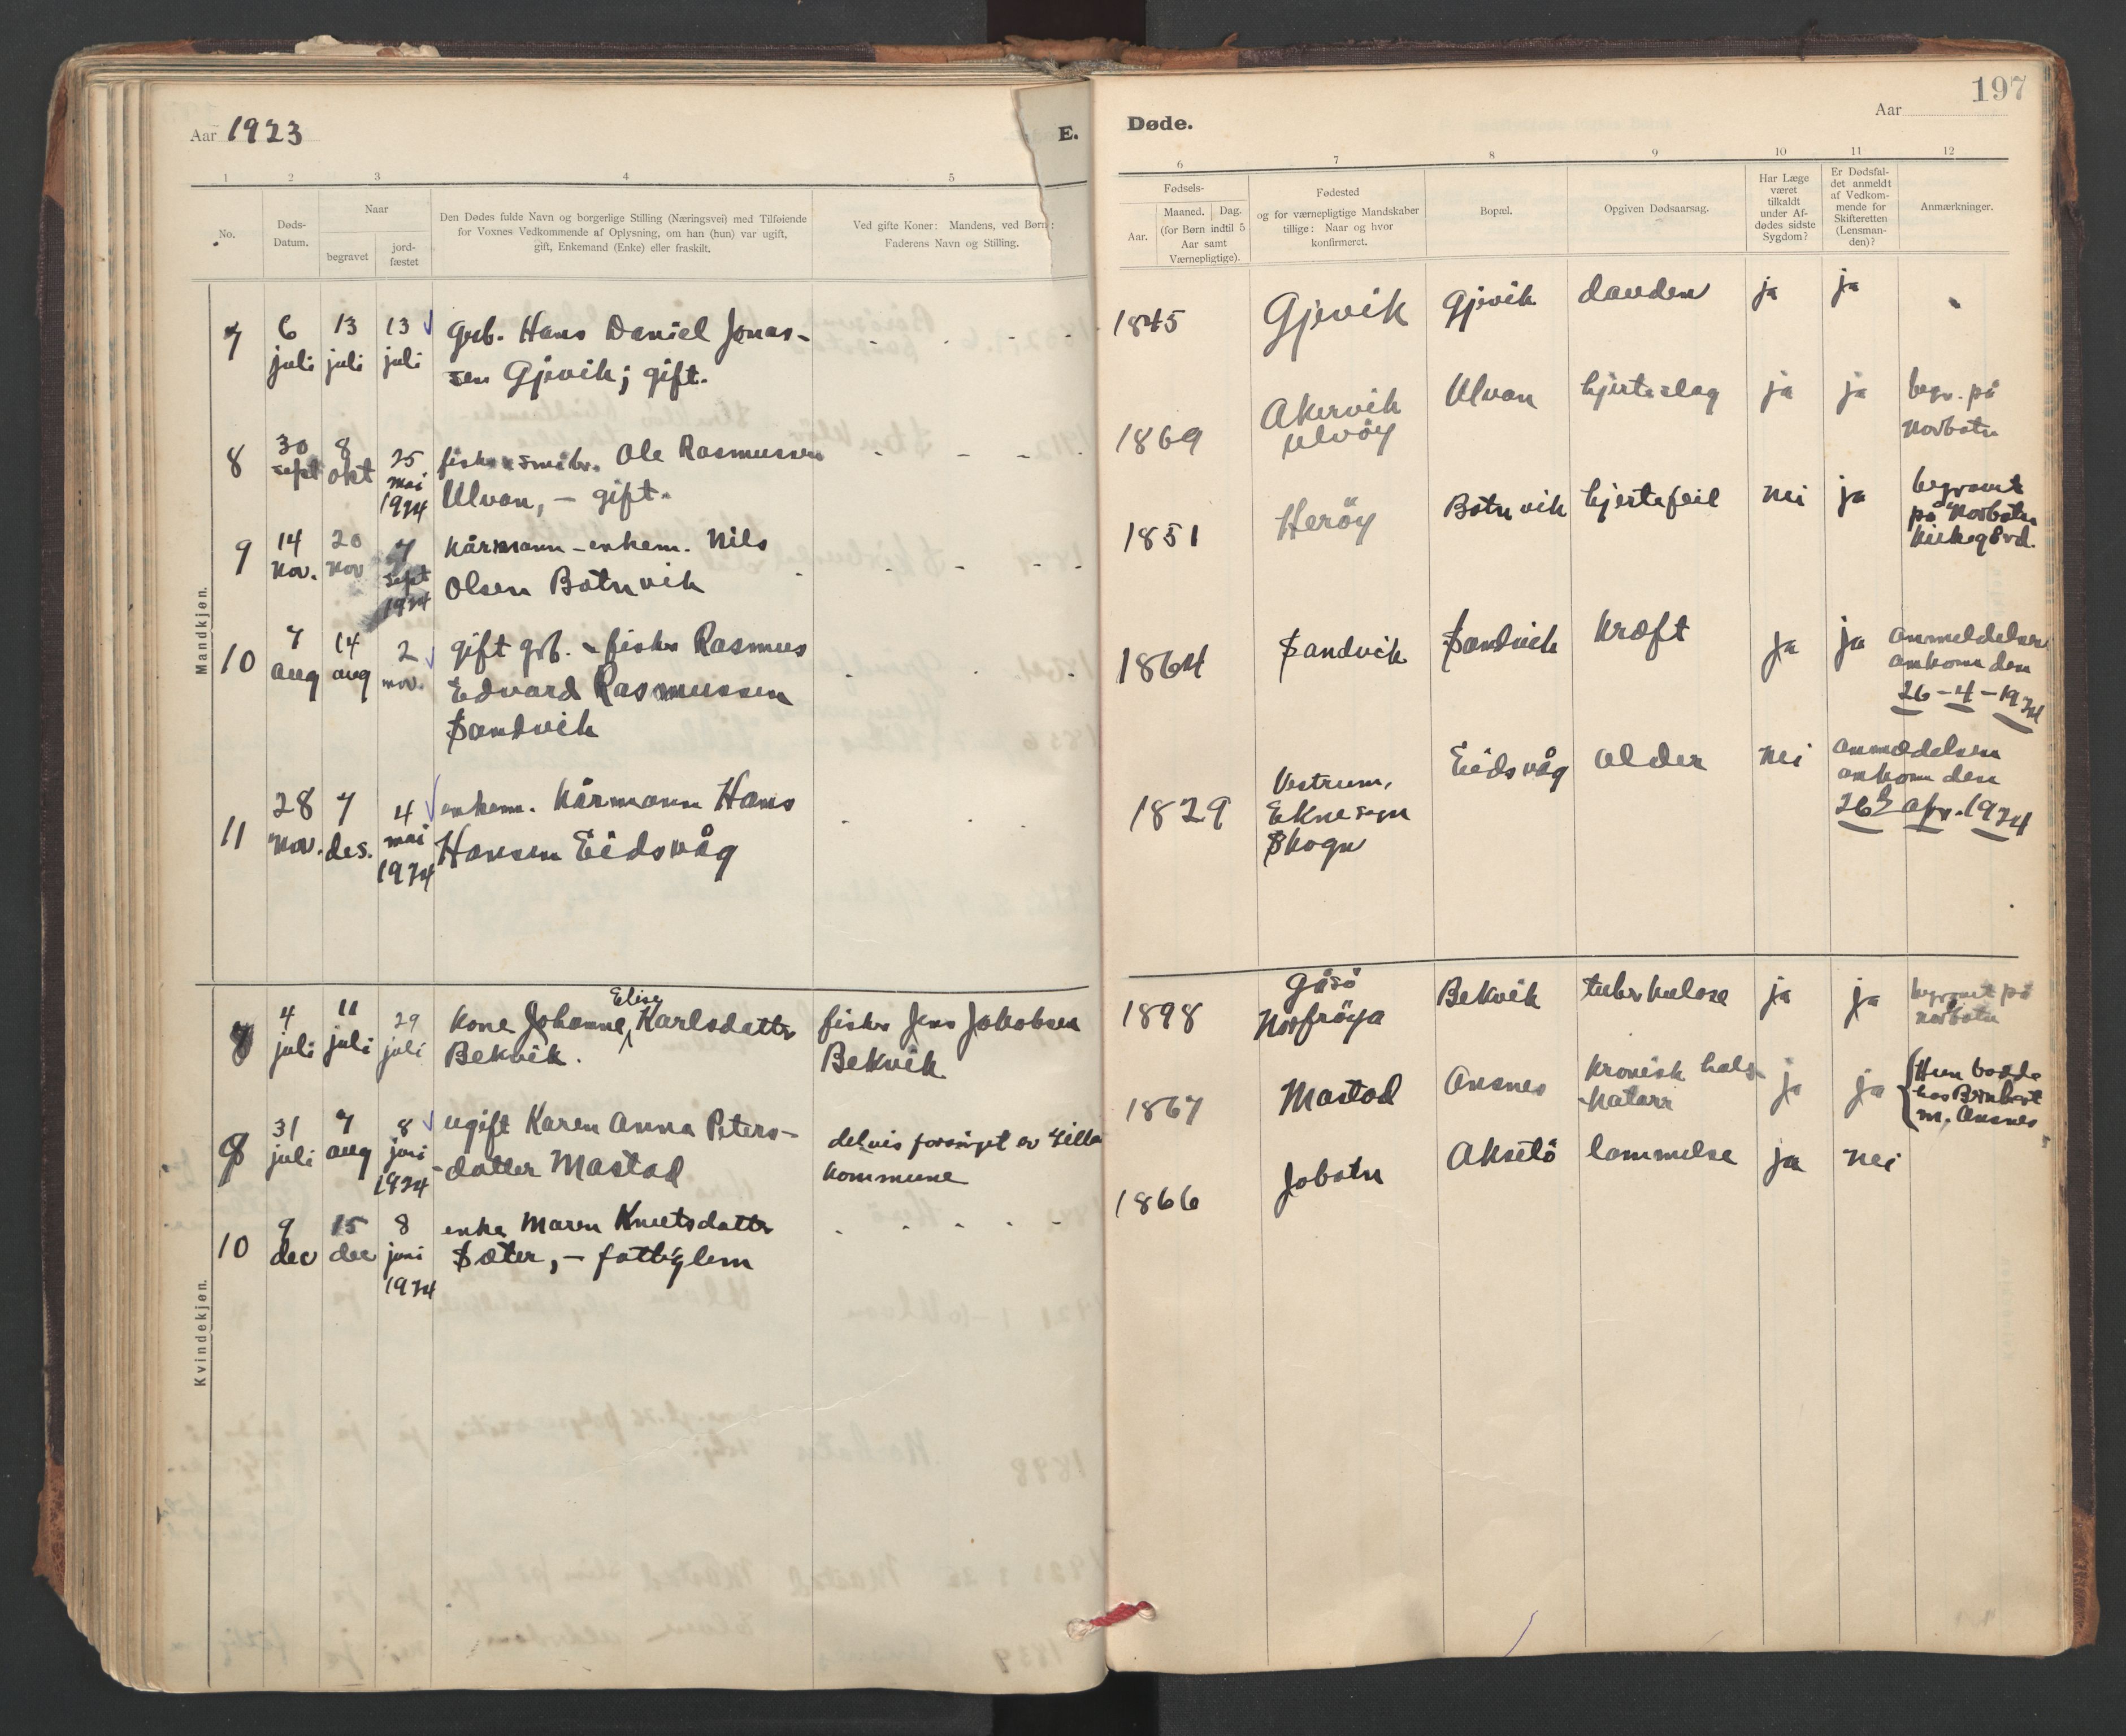 Aar 1923
E.
1 2 3 4 5
No.
Døds-
Datum.
Naar
begravet
jord-
fæstet
Den Dødes fulde Navn og borgerlige Stilling (Næringsvei) med Tilføiende
for Voxnes Vedkommende af Oplysning, om han (hun) var ugift,
gift, Enkemand (Enke) eller fraskilt.
Ved gifte Koner: Mandens, ved Børn:
Faderens Navn og Stilling.
Mandkjøn.
7 6 juli 13 juli 13 juli
grb. Hans Daniel Jonas-
sen Gjevik; gift.
8 30 sept 8 okt 25 mai 1924
Ole Rasmussen
Ulvan, – gift.
9 14 nov. 20 nov 7 sept 1924
kårmann – enkem. Nils
Olsen Botnvik
10 7 aug 14 aug 2 nov.
gift grb. – fisker Rasmus
Edvard Rasmussen
Sandvik
11 28 nov. 7 des. 4 mai 1924
enkem. kårmann Hans
Hansen Eidsvåg
Kvindekjøn.
4 juli 11 juli 29 juli
Elise
kone Johanne Karlsdatter
Bekvik.
fisker Jens Jakobsen
Bekvik
9 31 juli 7 aug 8 juni 1924
ugift Karen Anna Peters-
-datter Mastad
delvis forsørget av
kommune
10 9 dec 15 dec 8 juni 1924
enke Maren Knutsdatter
Sæter, – fattiglem
Døde.
Aar
197
6 7 8 9 10 11 12
Fødsels-
Aar.
Maaned. Dag.
(for Børn indtil 5
Aar samt
Værnepligtige).
Fødested
og for værnepligtige Mandskaber
tillige: Naar og hvor
konfirmeret.
Bopæl.
Opgiven Dødsaarsag.
Har Læge
været
tilkaldt
under Af-
dødes sidste
Sygdom?
Er Dødsfal-
det anmeldt
af Vedkom-
mende for
Skifteretten
(Lensman-
den)?
Anmærkninger.
1845 Gjevik Gjevik dauden ja ja
1869 Akervik
Ulvöy
Ulvan hjerteslag ja ja
begr. på
Norbotn
1851 Heröy Botnvik hjertefeil nei ja
begravet
på Norbotn
kirkegård.
1864 Sandvik Sandvik kræft ja ja
anmeldelsen
ankom den
26 – 4 – 1924
1829 Vestrum,
Ekne sogn
Skogn
Eidsvåg alder nei
anmeldelsen
ankom den
26 apr. 1924
1898 Gåsö
Norfröya
Bekvik tuberkulose ja ja
begravet på
Norbotn
1867 Mastad Ansnes kronisk hals-
-katarr
ja ja
Hun bodde
hos
m. Ansnes
1866 Jobotn Aksetö lammelse ja nei